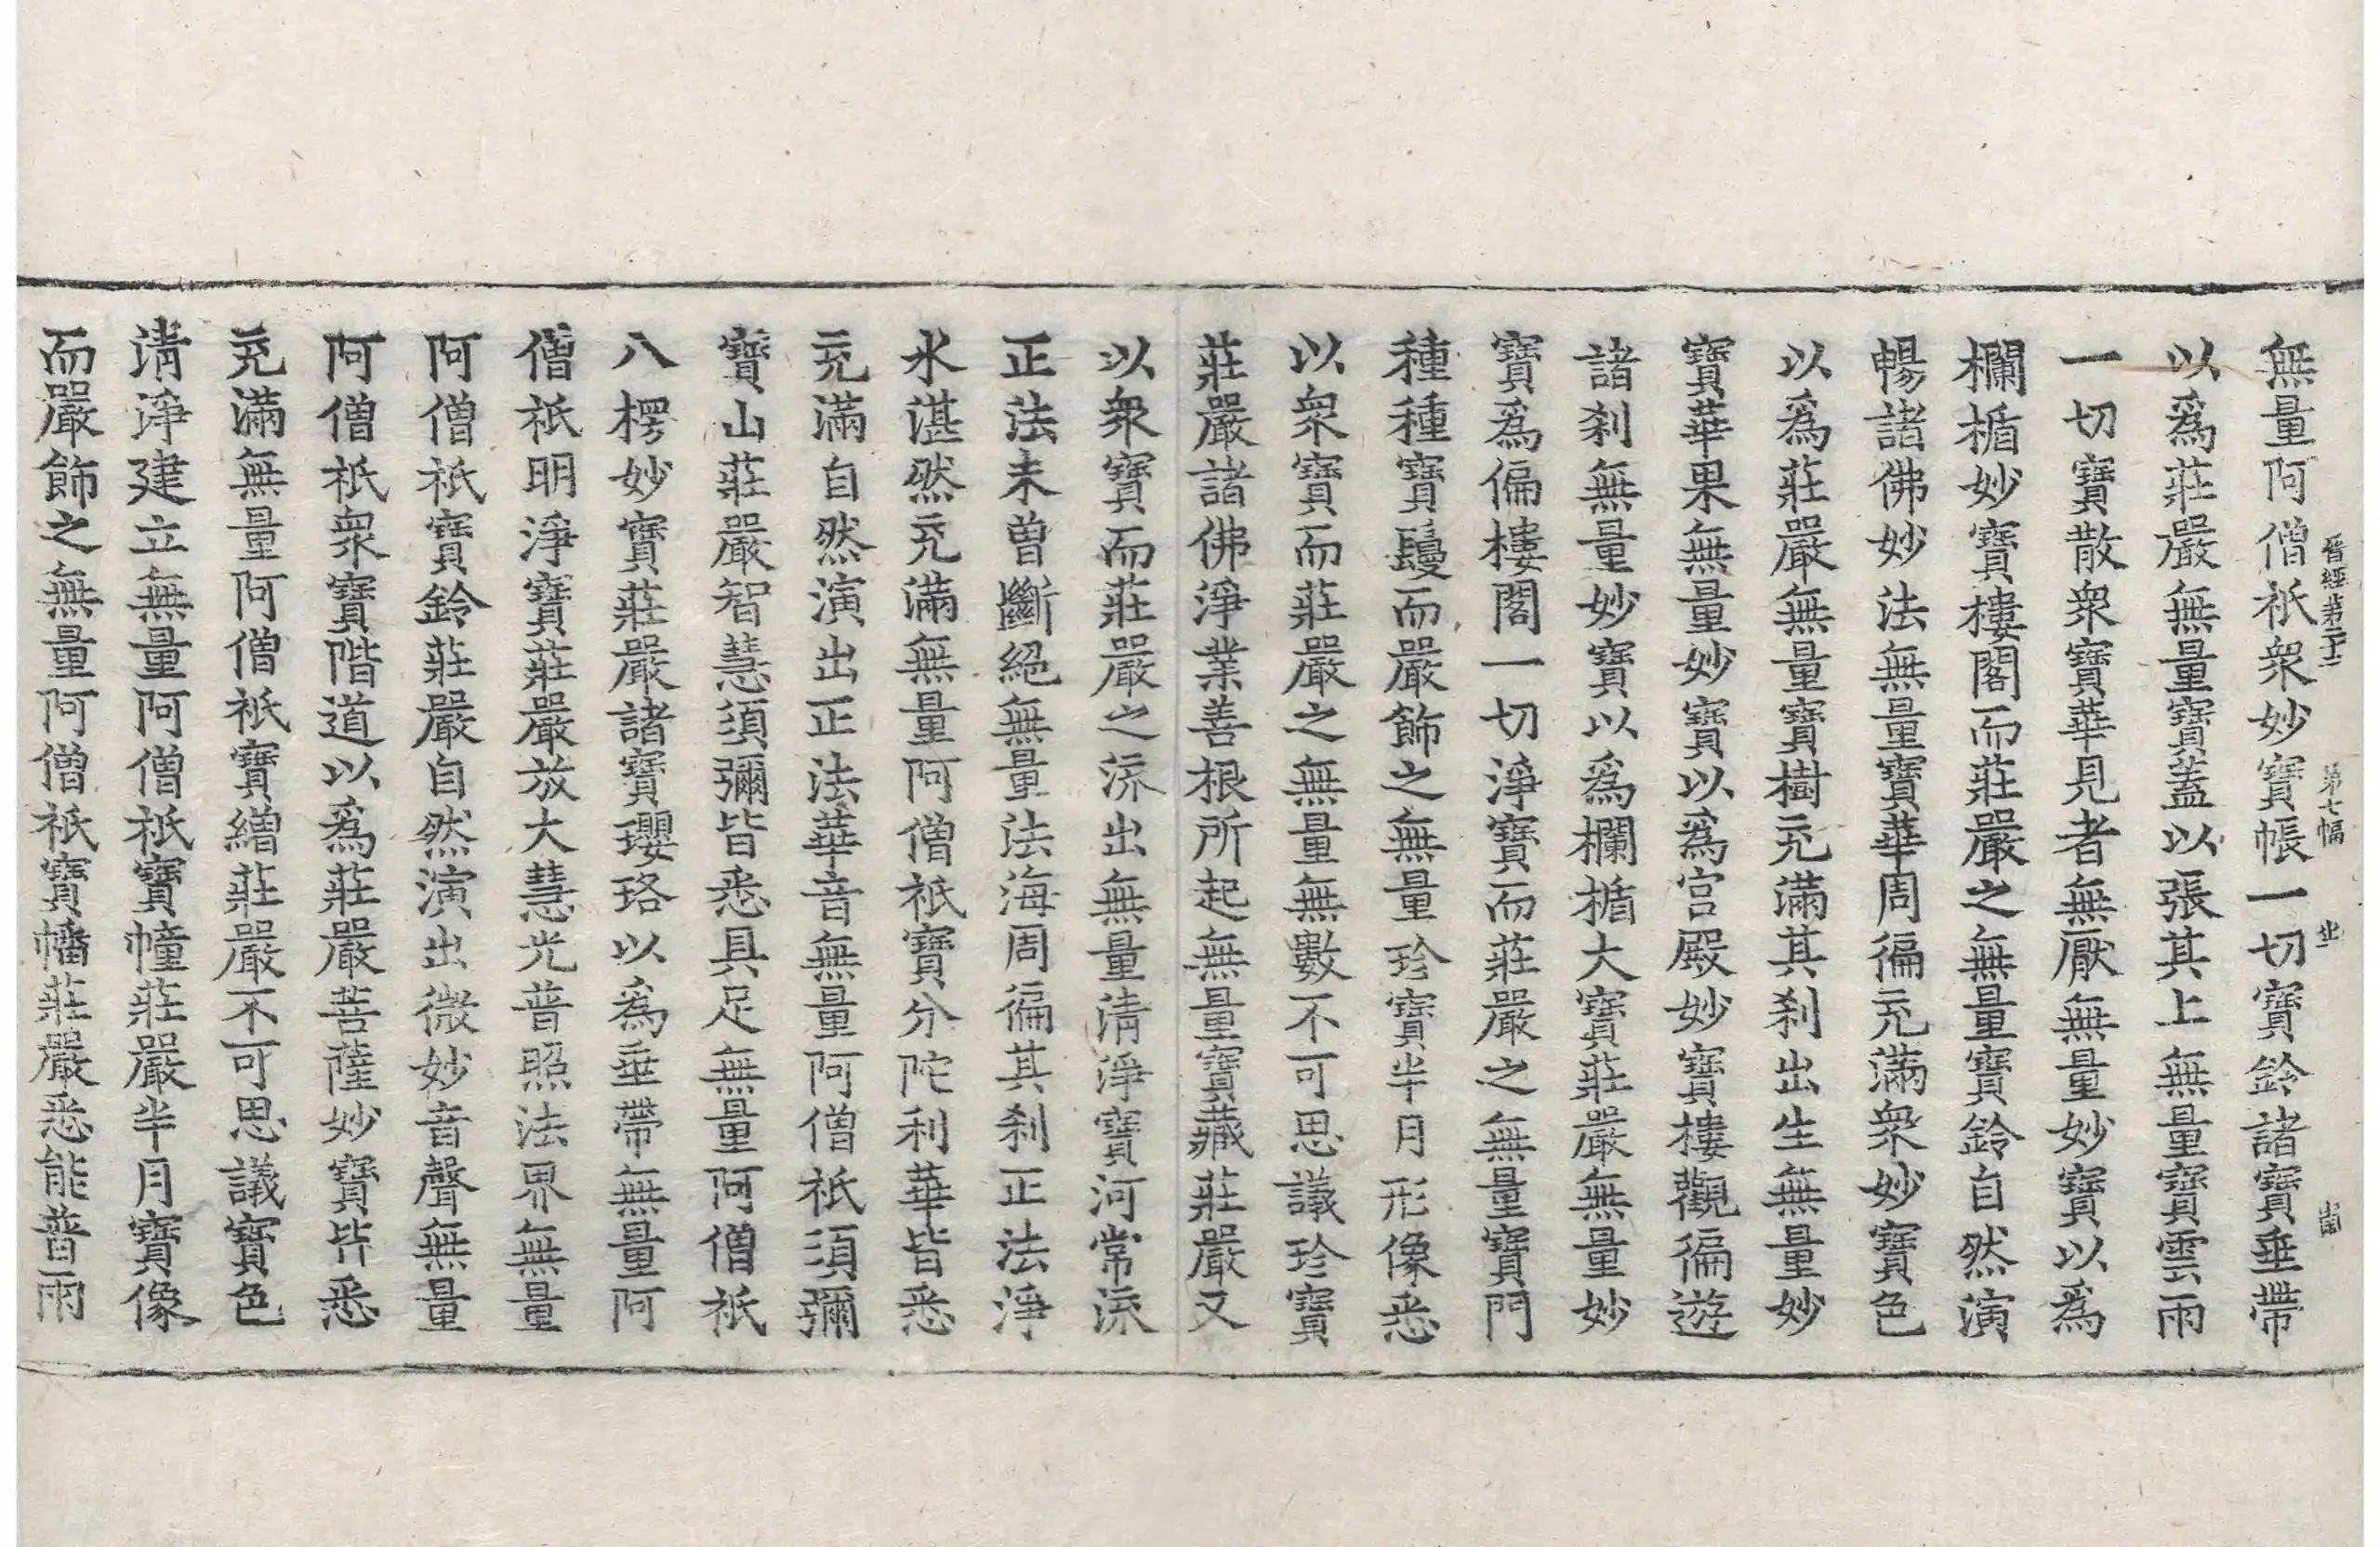 晉經第二十二 第七幅 坐
無量阿僧祇衆妙寶帳一切寶鈴諸寶垂帶
以爲莊嚴無量寶蓋以張其上無量寶雲雨
一切寶散衆寶華見者無厭無量妙寶以爲
欄楯妙寶樓閣而莊嚴之無量寶鈴自然演
暢諸佛妙法無量寶華周徧充滿衆妙寶色
以爲莊嚴無量寶樹充滿其刹出生無量妙
寶華果無量妙寶以爲宫殿妙寶樓觀徧遊
諸刹無量妙寶以爲欄楯大寶莊嚴無量妙
寶爲偏樓閣一切淨寶而莊嚴之無量寶門
種種寶鬘而嚴飾之無量珍寶半月形像悉
以衆寶而莊嚴之無量無數不可思議珍寶
莊嚴諸佛淨業善根所起無量寶藏莊嚴又
以衆寶而莊嚴之流出無量清淨寶河常流
正法未曽斷絕無量法海周徧其刹正法淨
水湛然充滿無量阿僧祇寶分陀利華皆悉
充滿自然演出正法華音無量阿僧祇須彌
寶山莊嚴智慧須彌皆悉具足無量阿僧祇
八楞妙寶莊嚴諸寶瓔珞以爲垂帶無量阿
僧祇明淨寶莊嚴放大慧光普照法界無量
阿僧祇寶鈴莊嚴自然演出微妙音聲無量
阿僧祇衆寶階道以爲莊嚴菩薩妙寶皆悉
充滿無量阿僧祇寶繒莊嚴不可思議寶色
清淨建立無量阿僧祇寶幢莊嚴半月寶像
而嚴飾之無量阿僧祇寶幡莊嚴悉能普雨